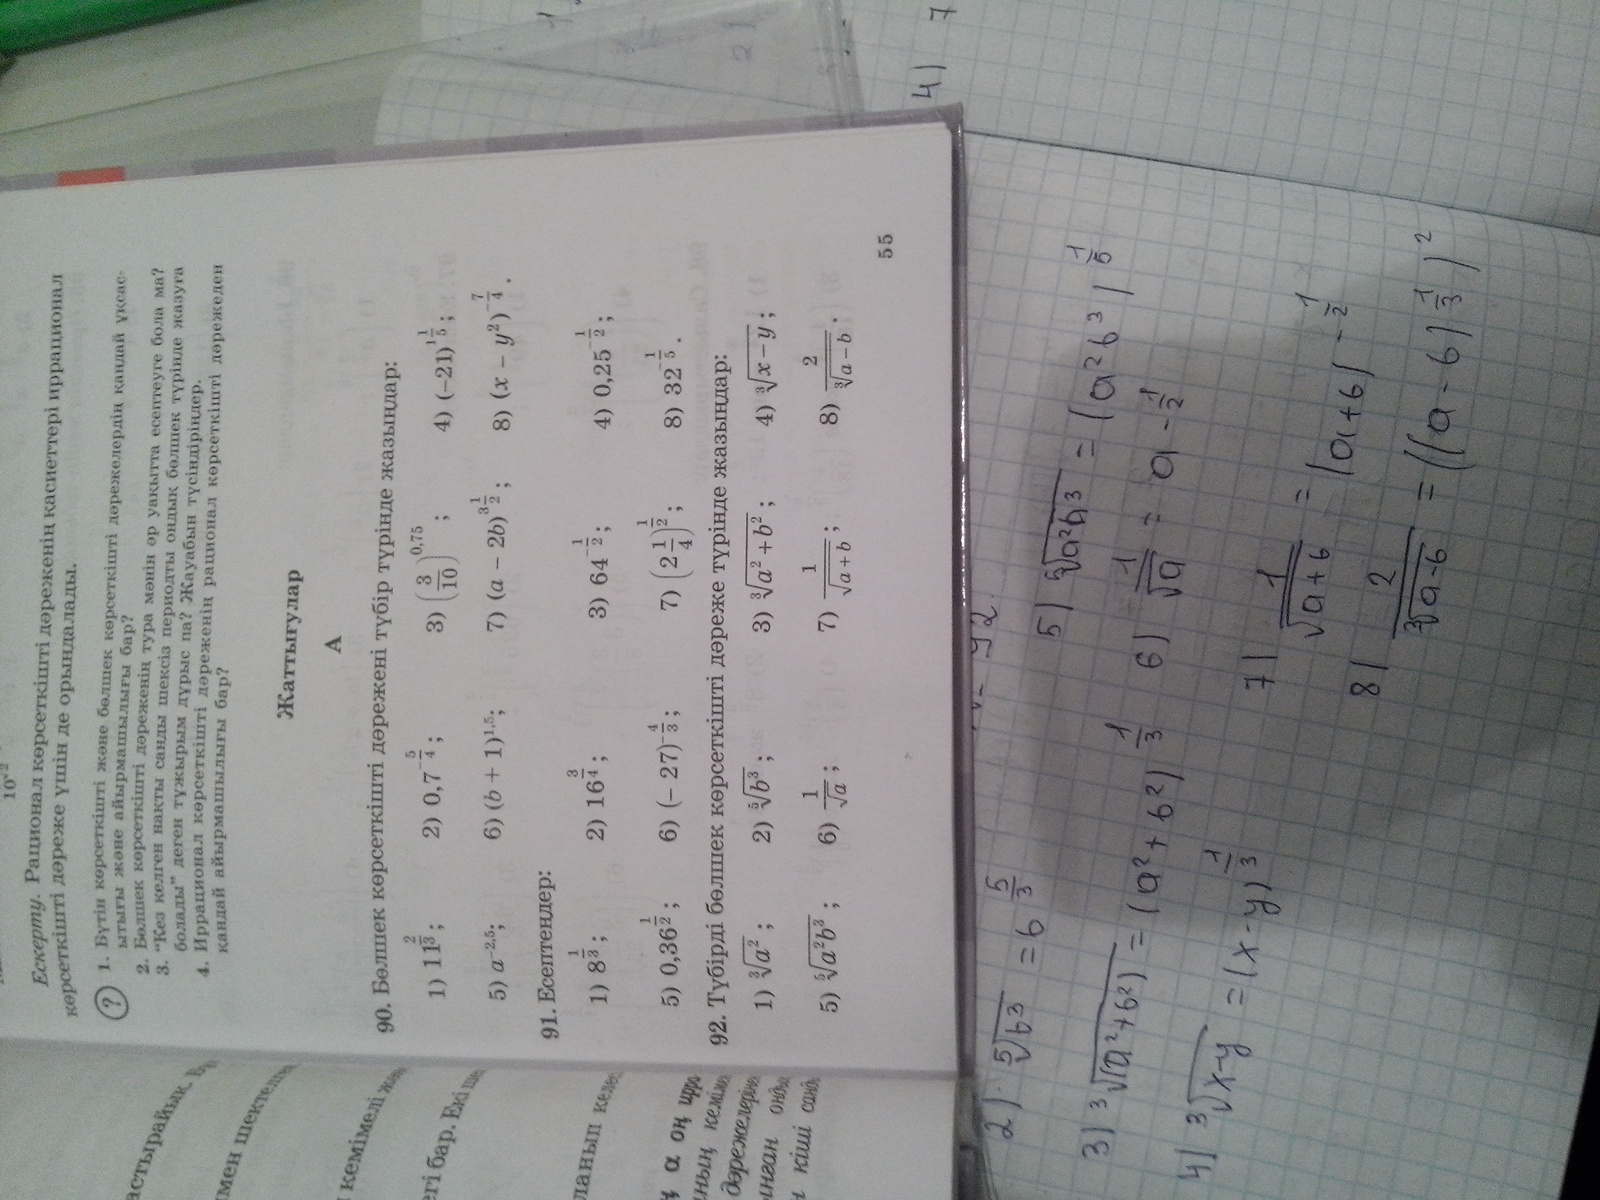 Ескерту. Рационал көрсеткішті дәреженің қасиеттері иррационал
көрсеткішті дәреже үшін де орындалады.
? 1. Бүтін көрсеткішті және бөлшек көрсеткішті дәрежелердің қандай ұқсас-
ытығы және айырмашылығы бар?
2. Бөлшек көрсеткішті дәреженің тура мәнін әр уақытта есептеуге бола ма?
3. "Кез келген нақты санды шексіз периодты ондық бөлшек түрінде жазуға
болады" деген тұжырым дұрыс па? Жауабын түсіндіріңдер.
4. Иррационал көрсеткішті дәреженің рационал көрсеткішті дәрежеден
қандай айырмашылығы бар?
Жаттығулар
А
90. Бөлшек көрсеткішті дәрежені түбір түрінде жазыңдар:
1) 11^(2/3); 2) 0,7^(-5/4); 3) (3/10)^0,75; 4) (−21)^(1/5);
5) a^−2,5; 6) (b + 1)^1,5; 7) (a − 2b)^(3 1/2); 8) (x − y²)^(-7/4).
91. Есептеңдер:
1) 8^(1/3); 2) 16^(3/4); 3) 64^(-1/2); 4) 0,25^(-1/2);
5) 0,36^(1/2); 6) (−27)^(-4/3); 7) (2 1/4)^(1/2); 8) 32^(-1/5).
92. Түбірді бөлшек көрсеткішті дәреже түрінде жазыңдар:
1) ∛a²; 2) ⁵√b³; 3) ∛(a² + b²); 4) ∛(x − y);
5) ⁵√(a²b³); 6) 1/√a; 7) 1/√(a + b); 8) 2/∛(a − b).
55
астырайық.
імен шектел
кемімелі
егі бар. Екі
ланып келес
а оң
ның кемім
дәрежелері
ынған онды
кіші санд
92.
2) ⁵√b³ = b^(5/3)
3) ³√(a²+b²) = (a²+b²)^(1/3)
4) ³√(x-y) = (x-y)^(1/3)
5) ⁵√(a²b³) = (a²b³)^(1/5)
6) 1/√a = a^(-1/2)
7) 1/√(a+b) = (a+b)^(-1/2)
8) 2/³√(a-b) = ((a-b)^(1/3))²
4) 7